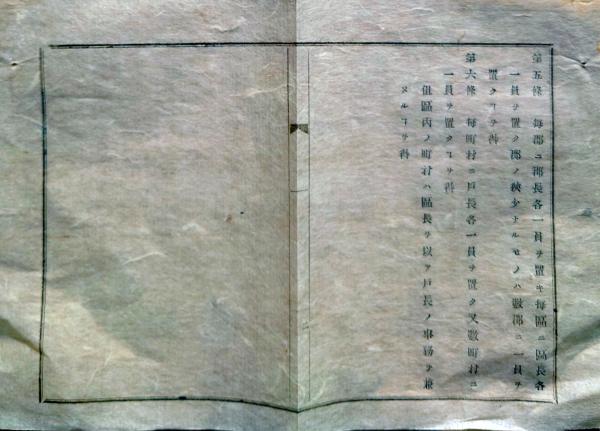 第五條　毎郡ニ郡長各一員ヲ置キ毎區ニ區長各
一員ヲ置ク郡ノ狹少ナルモノハ數郡ニ一員ヲ
置クコヲ得
第六條　毎町村ニ戸長各一員ヲ置ク又數町村ニ
一員ヲ置クコヲ得
但區内ノ町村ハ區長ヲ以テ戸長ノ事務ヲ兼
ヌルコヲ得